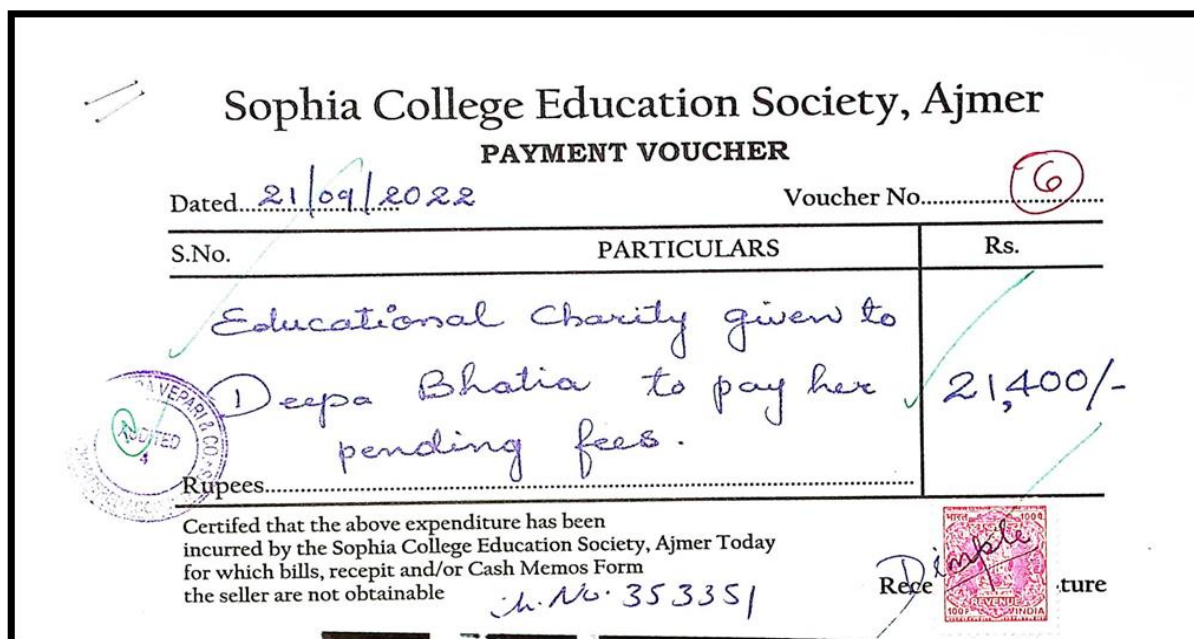 Sophia College Education Society, Ajmer
PAYMENT VOUCHER
Dated 21/09/2022 Voucher No. 6
S.No. PARTICULARS Rs.
Educational Charity given to
Deepa Bhatia to pay her 21,400/-
pending fees.
VEPARI & CO.
AUDITED
Rupees
Certifed that the above expenditure has been
incurred by the Sophia College Education Society, Ajmer Today
for which bills, recepit and/or Cash Memos Form
the seller are not obtainable
No. 353351
भारत 100
Dimple
Rece ture
REVENUE
100 INDIA